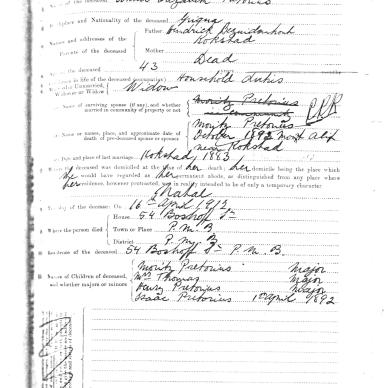 Name of the deceased
Elizabeth Pretorius
Birthplace and Nationality of the deceased
Names and addresses of the Parents of the deceased
Father Hendrick Bezuidenhout
Kokstad
Mother
Dead
Age of the deceased 43
in life of the deceased (occupation) Household Duties
Married or Unmarried, Widower or Widow Widow
Name of surviving spouse (if any), and whether married in community of property or not
Moritz Pretorius
Name or names, place, and approximate date of death of pre-deceased spouse or spouses
Moritz Pretorius
October 1892
near Kokstad
Date and place of last marriage Kokstad, 1883
If deceased was domiciled at the time of her death; her domicile being the place which
he would have regarded as her permanent abode, as distinguished from any place where
her residence, however protracted, was in reality intended to be only of a temporary character
Natal
The day of the decease: On 16th April 1913
Where the person died
House 54 Boshoff St
Town or Place P. M. B
District P. M. B
Residence of the deceased 54 Boshoff St P. M. B.
Names of Children of deceased, and whether majors or minors
Moritz Pretorius Major
Mrs Thomas Major
Pretorius Major
Isaac Pretorius 10 April 1892